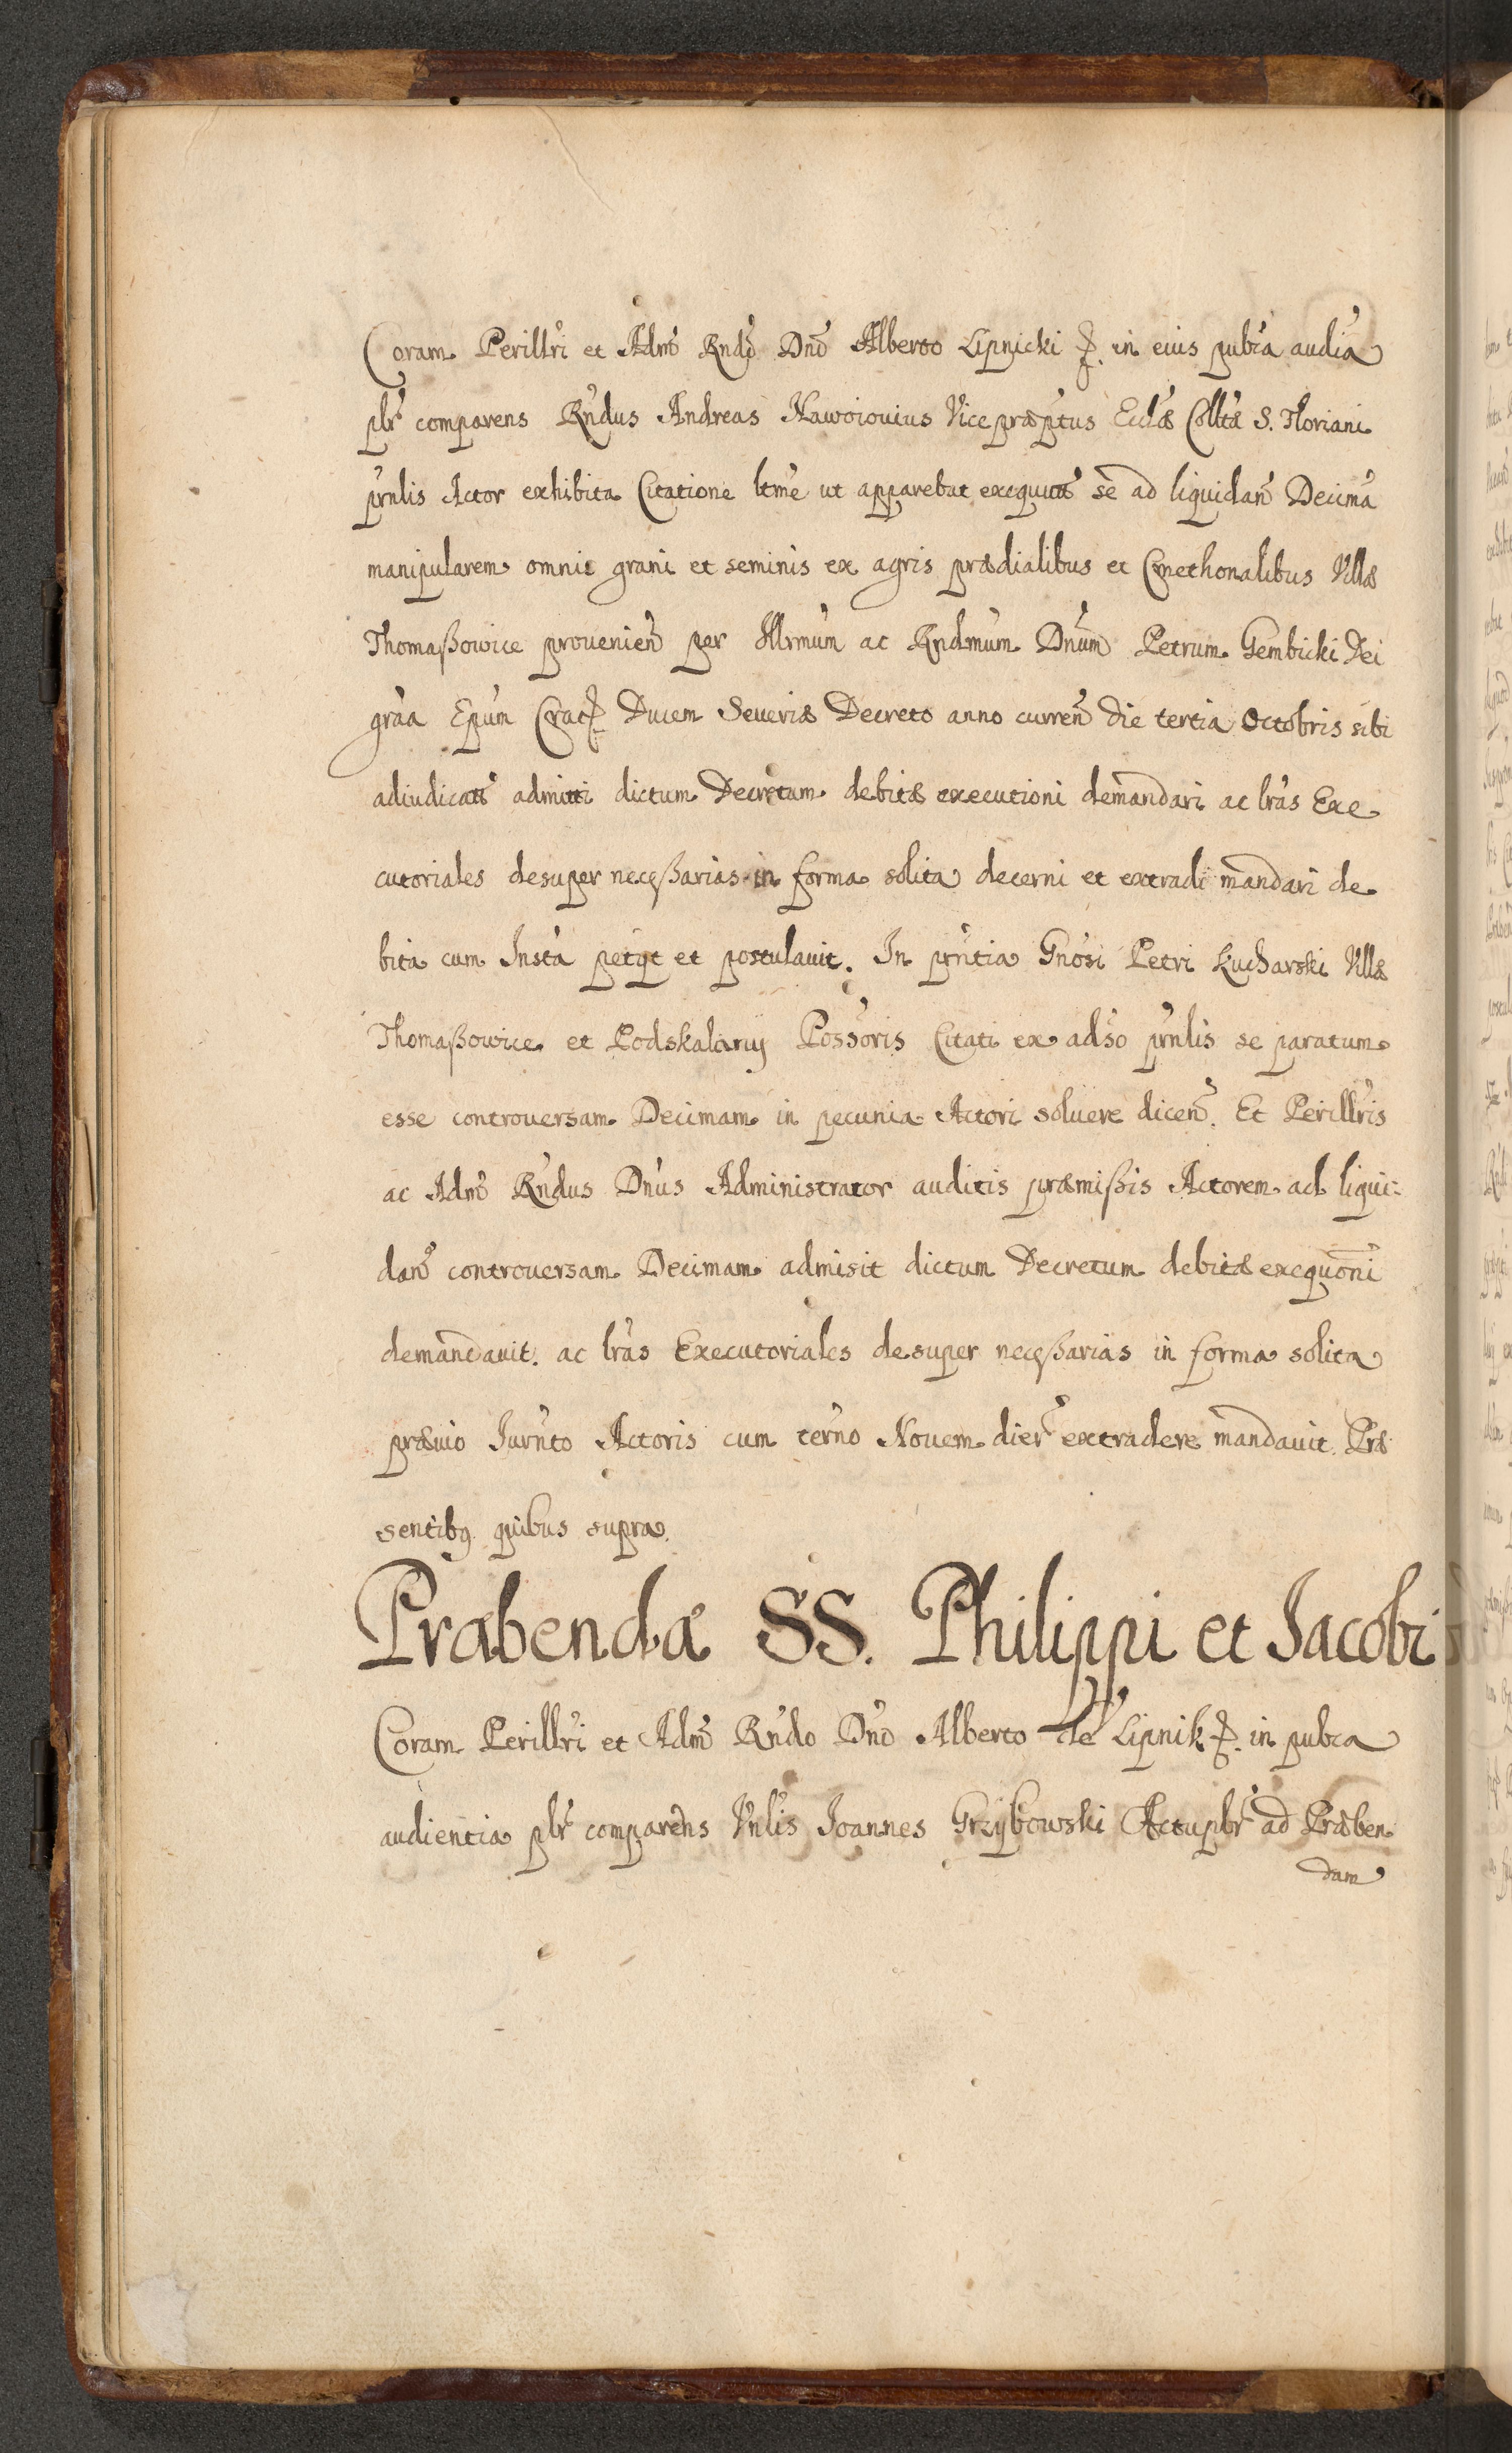 Coram Perillri et Adm̃ Rndo Dnõ Alberto Lipnicki &. in eius pubca audia
plr̃ comparens Rndus Andreas Nawoiouius Vicepræptus Eccłæ Colltæ S. Floriani
prnlis Actor exhibita Citatione ltme ut apparebat exequuta se ad liquidan̄ Decimã
manipularem omnis grani et seminis ex agris prædialibus et Cmethonalibus Villæ
Thomaßowice prouenień per Illrmum ac Rndmum Dnum Petrum Gembicki Dei
gràa Epum Crac& Ducem Seueriæ Decreto anno curreń die tertia Octobris sibi
adiudicatã admitti dictum Decretum debitæ executioni demandari ac lras Exe
cutoriales desuper neceßarias in forma solita decerni et extradi mandari de
bita cum Insta petijt et postulauit. In prntia Gnosi Petri Kucharski Villæ
Thomaßowice et Podskalany Possoris Citati ex adso prnlis se paratum
esse controuersam Decimam in pecunia Actori soluere diceń. Et Perillris
ac Adm̃ Rndus Dnus Administrator auditis præmißis Actorem ad liqui-
dań controuersam Decimam admisit dictum Decretum debitæ exequoni
demandauit. ac lras Executoriales desuper neceßarias in forma solita
præuio Iurnto Actoris cum termo Nouem dier̃ extradere mandauit. Præ
sentibq quibus supra.
Præbendæ SS. Philippi et Iacobi
Coram Perillri et Adm̃ Rndo Dno Alberto de Lipnik &. in pubca
audientia plr̃ comparens Vnlis Ioannes Grzybowski Actuplr̃ ad Præben
dam